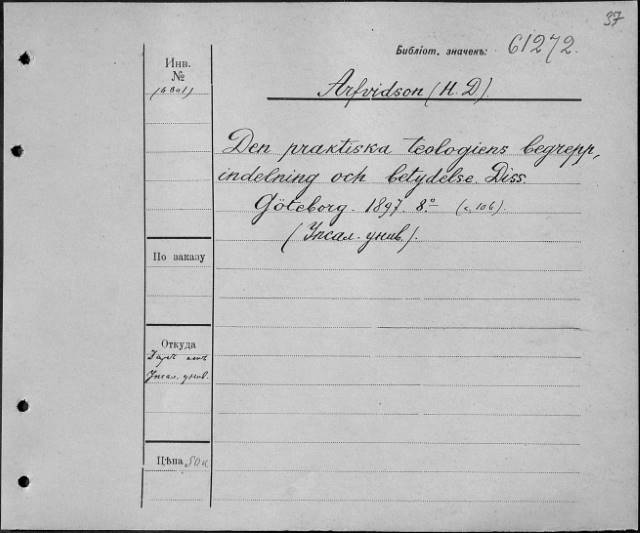 37
Библіот. значекъ: 61272.
Инв.
№
Arfvidson (H. D).
Den praktiska teologiens begrepp,
indelning och betydelse. Diss.
Göteborg. 1897. 8º (c. 106).
(Упсал. унив.).
По заказу
Откуда
Даръ отъ
Упсал. унив.
Цѣна 50 к